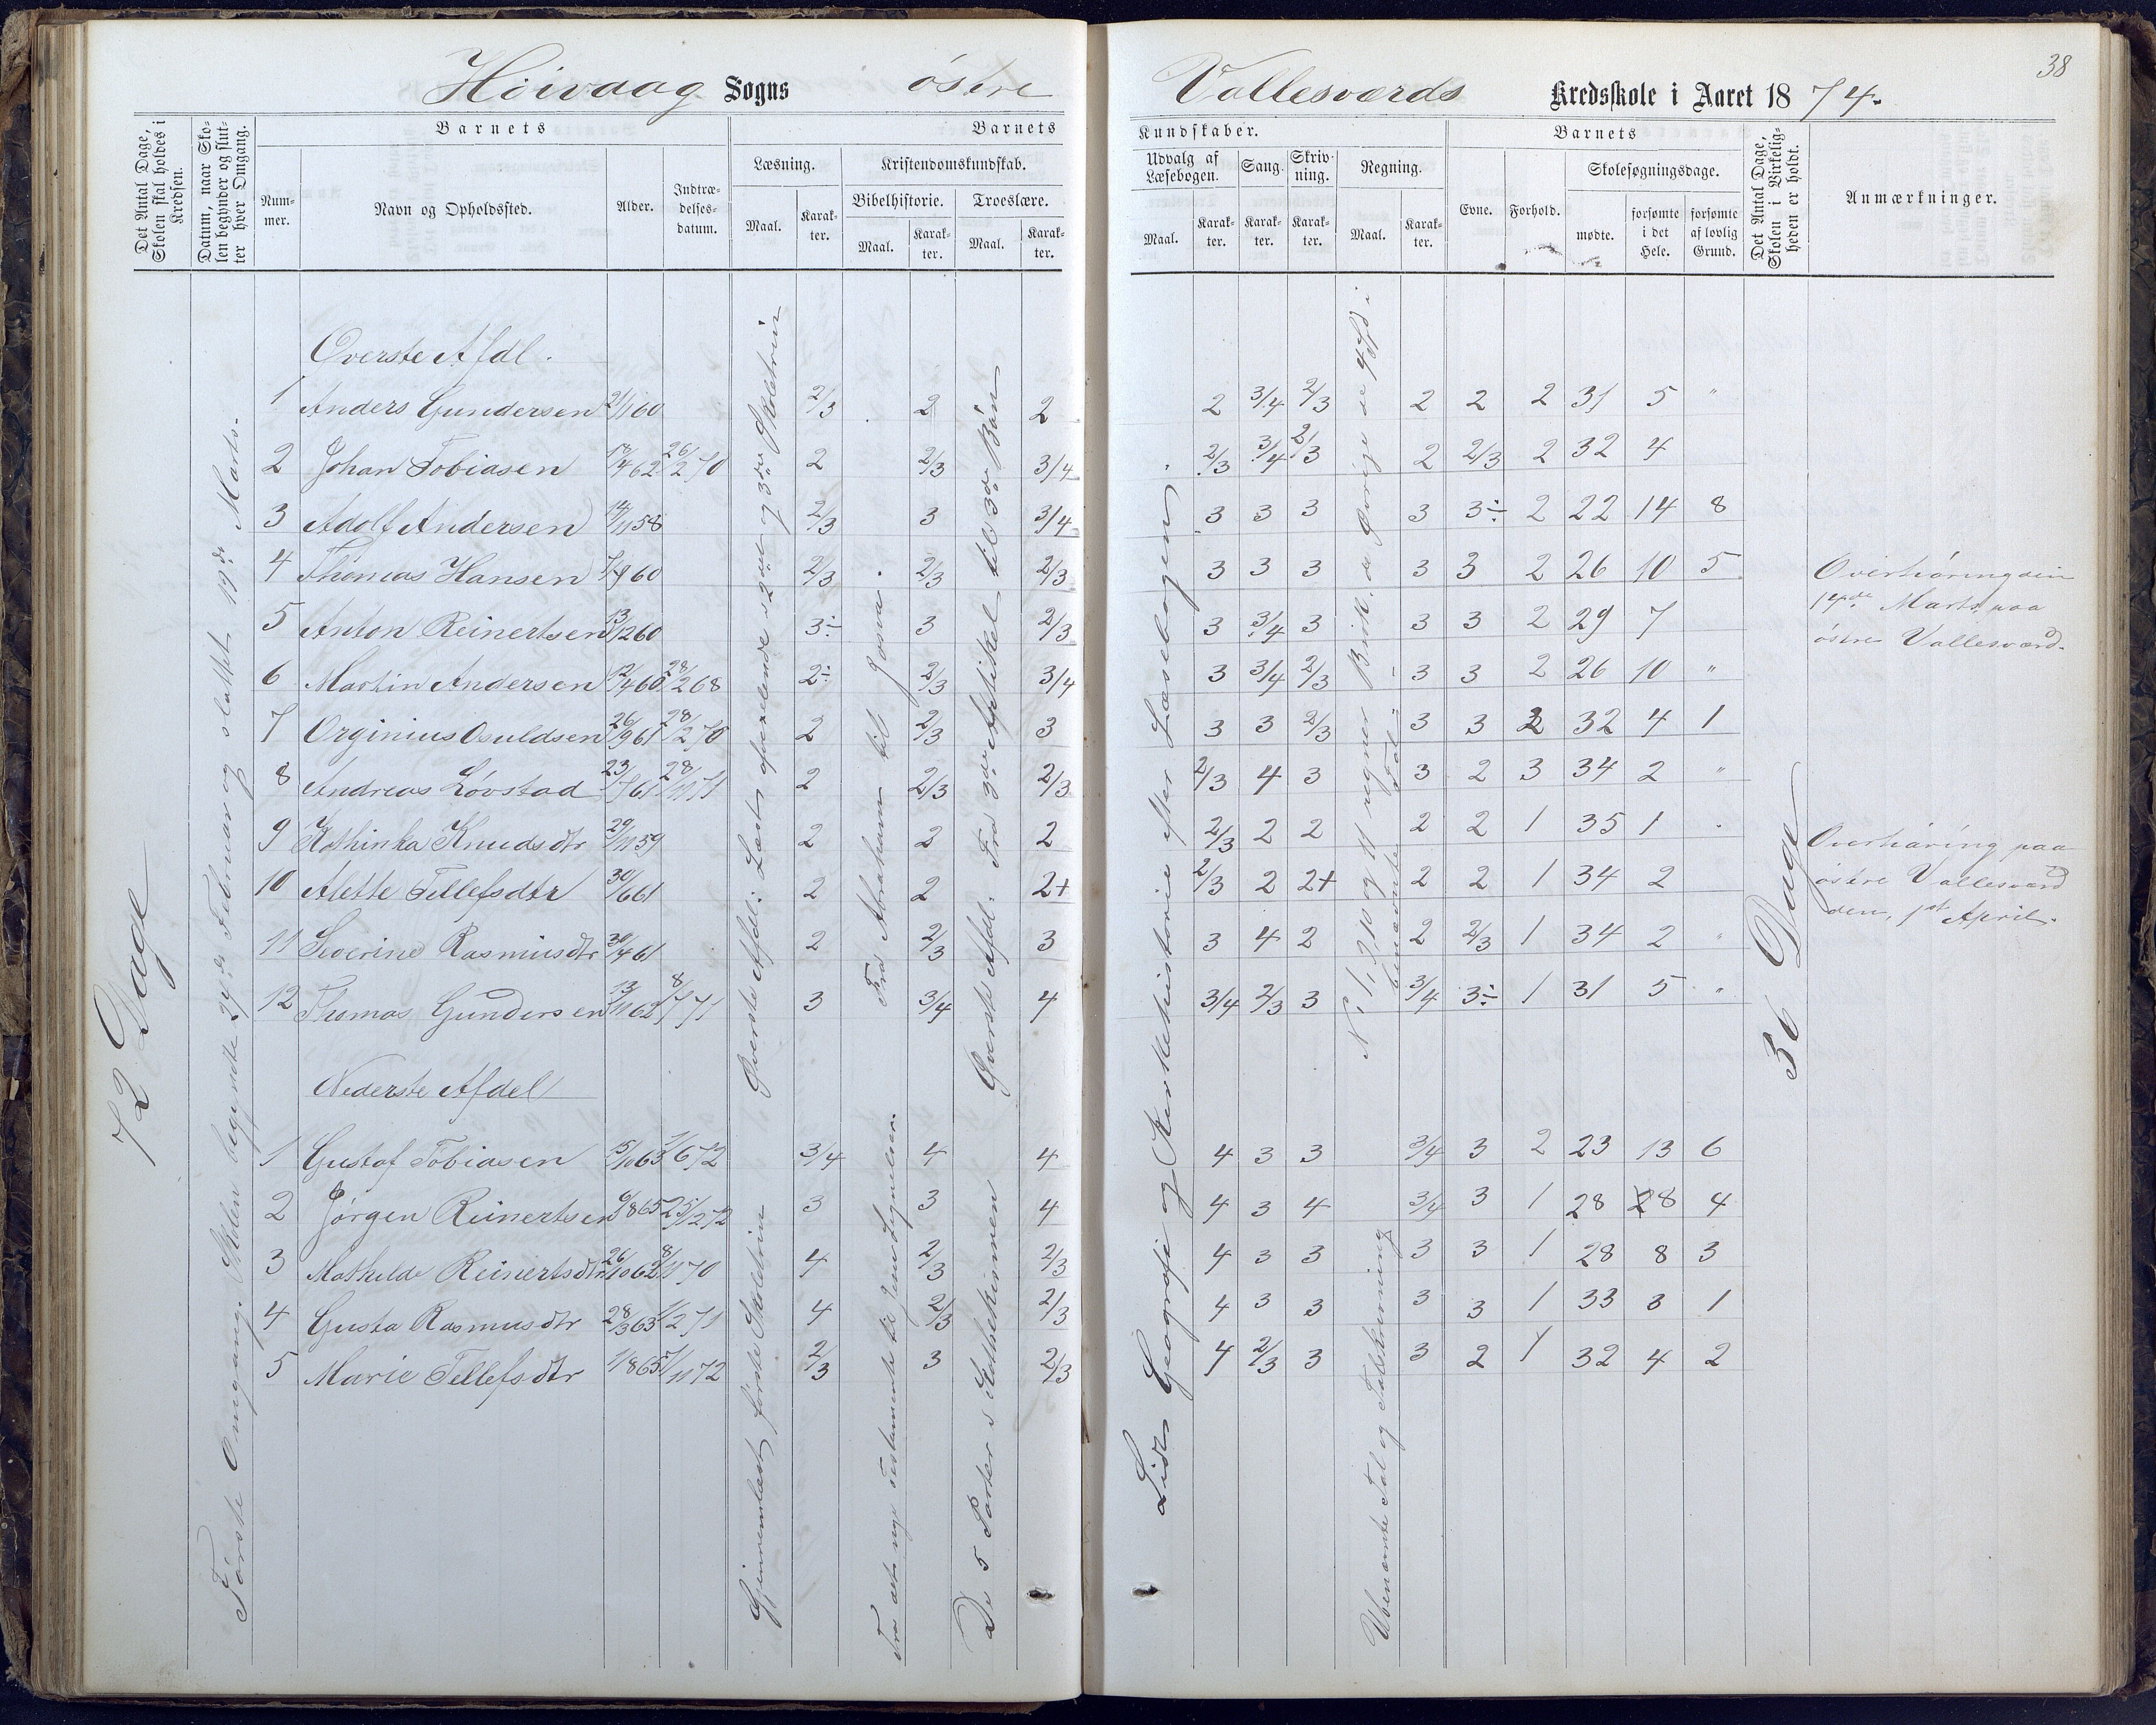 38
Høivaag Sogns østre Vallesværds Kredsskole i Aaret 1874.
Det Antal Dage, Skolen skal holdes i Kredsen.
Datum, naar Skolen begynder og slutter hver Omgang.
Barnets
Nummer.
Navn og Opholdssted.
Alder.
Indtrædelsesdatum.
Barnets
Læsning.
Maal.
Karakter.
Kristendomskundskab.
Bibelhistorie.
Maal.
Karakter.
Troeslære.
Maal.
Karakter.
Kundskaber.
Udvalg af Læsebogen.
Maal.
Karakter.
Sang.
Karakter.
Skrivning.
Karakter.
Regning.
Maal.
Karakter.
Barnets
Evne.
Forhold.
Skolesøgningsdage.
mødte.
forsømte i det Hele.
forsømte af lovlig Grund.
Det Antal Dage, Skolen i Virkeligheden er holdt.
Anmærkninger.
72 Dage
Første Omgang. Skolen begyndte Februar og sluttet 19de Marts.
Øverste Afdl.
1 Anders Gundersen 21/1 60 2/3 2 2 2 3/4 2/3 2 2 2 31 5 "
2 Johan Tobiasen 17/4 62 26/2 70 2 2/3 3/4 2/3 3/4 2/3 2 2/3 2 32 4
3 Adolf Andersen 14/11 58 2/3 3 3/4 3 3 3 3 3÷ 2 22 14 8
4 Thomas Hansen 7/9 60 2/3 2/3 2/3 3 3 3 3 3 2 26 10 5
5 Anton Reinertsen 13/12 60 3÷ 3 2/3 3 3/4 3 3 3 2 29 7
6 Martin Andersen 12/4 60 28/2 68 2÷ 2/3 3/4 3 3/4 2/3 3 3 2 26 10 "
7 Orginius Osuldsen 26/9 61 28/2 70 2 2/3 3 3 3 2/3 3 3 2 32 4 1
8 Andreas Løvstad 23/7 61 28/11 71 2 2/3 2/3 2/3 4 3 3 2 3 34 2 "
9 Kathinka Knudsdtr 29/11 59 2 2 2 2/3 2 2 2 2 1 35 1 "
10 Alette Tellefsdtr 30/6 61 2 2 2+ 2/3 2 2+ 2 2 1 34 2
11 Severine Rasmusdtr 30/4 61 2 2/3 3 3 4 2 2 2/3 1 34 2 "
12 Thomas Gundersen 13/11 62 8/7 71 3 3/4 4 3/4 2/3 3 3/4 3÷ 1 31 5 "
Nederste Afdel
1 Gustaf Tobiasen 15/10 63 7/6 72 3/4 4 4 4 3 3 3/4 3 2 23 13 6
2 Jørgen Reinertsen 6/8 65 25/12 72 3 3 4 4 3 4 3/4 3 1 28 8 4
3 Mathilde Reinertsdtr 26/10 62 8/11 70 4 2/3 2/3 4 3 3 3 3 1 28 8 3
4 Gusta Rasmusdtr 28/3 63 1/2 71 4 2/3 2/3 4 3 3 3 3 1 33 3 1
5 Marie Tellefsdtr 1/8 65 7/11 72 2/3 3 2/3 4 2/3 3 3 2 1 32 4 2
Øverste Afdl: Læste afvexlende i 2det og 3die Skoletrin
Gjennemlæst første Skoletrin
Fra Abrahams til Josva.
Fra det nye Testamente til Jesu Lignelser.
Øverste Afdl: Fra Artikel til 3die Bøn
De 5 Parter i Kathekismen
Lidt Geografi og Kirkehistorie efter Læsebogen.
No 1, 2, 10 og 11 regner Brøk, de Øvrige de 4 Spd i benævnte Tal
Ubenævnte Tal og Talskrivning
36 Dage
Overhøring den
17de Marts paa
østre Vallesværd.
Overhøring paa
østre Vallesværd
den 1st April.